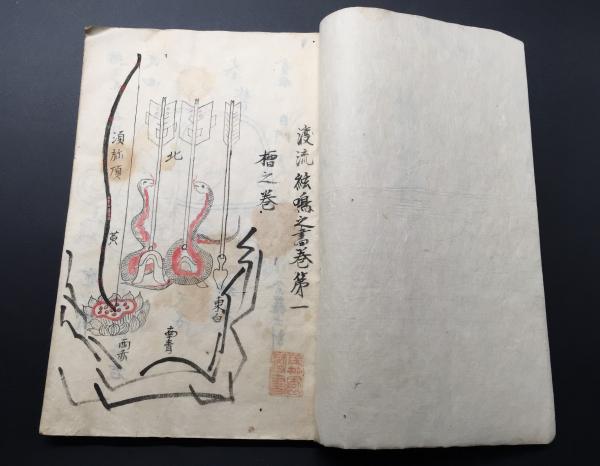 渡流弦鳴之書巻第一
檜之巻
北
須弥頂
黄
東白
南青
西赤